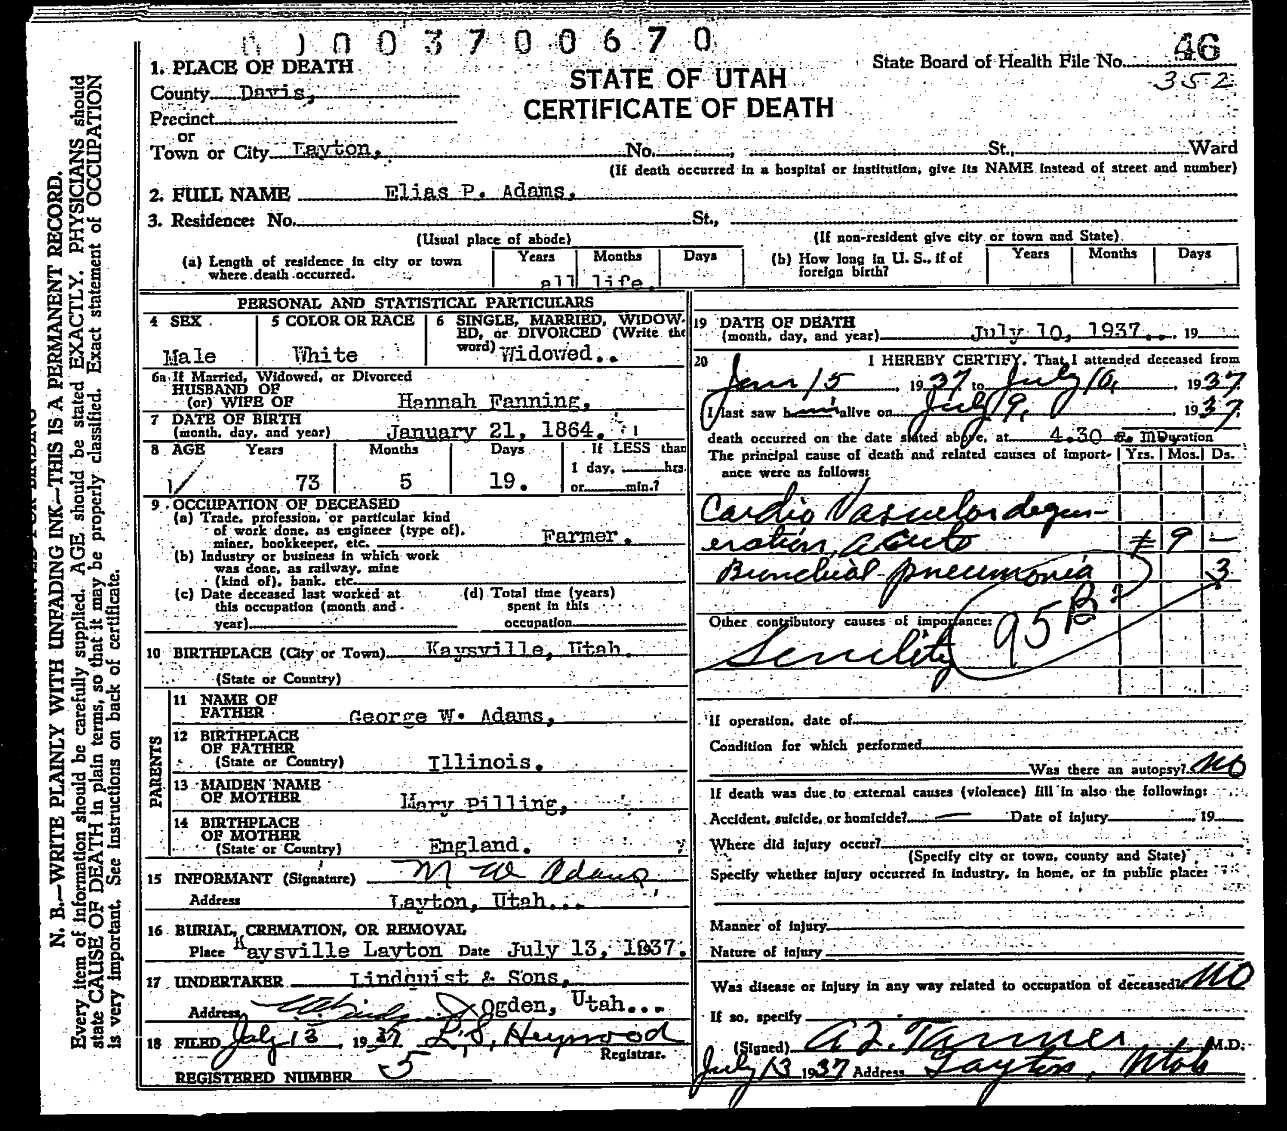 0 0 0 0 3 7 0 0 6 7 0
State Board of Health File No. 46
352
STATE OF UTAH
CERTIFICATE OF DEATH
1. PLACE OF DEATH
County Davis,
Precinct
or
Town or City Layton, No. , St., Ward
(If death occurred in a hospital or institution, give its NAME instead of street and number)
2. FULL NAME Elias P. Adams,
3. Residence: No. St.,
(Usual place of abode) (If non-resident give city or town and State)
(a) Length of residence in city or town where death occurred. Years Months Days
all life.
(b) How long in U. S., if of foreign birth? Years Months Days
PERSONAL AND STATISTICAL PARTICULARS
4 SEX
Male
5 COLOR OR RACE
White
6 SINGLE, MARRIED, WIDOW-
ED, or DIVORCED (Write the
word) Widowed..
6a If Married, Widowed, or Divorced
HUSBAND OF
(or) WIFE OF Hannah Fanning.
7 DATE OF BIRTH
(month, day, and year) January 21, 1864.
8 AGE Years Months Days If LESS than
1 day, hrs.
73 5 19. or min.?
9 OCCUPATION OF DECEASED
(a) Trade, profession, or particular kind
of work done, as engineer (type of),
miner, bookkeeper, etc. Farmer.
(b) Industry or business in which work
was done, as railway, mine
(kind of), bank, etc.
(c) Date deceased last worked at
this occupation (month and
year)
(d) Total time (years)
spent in this
occupation
10 BIRTHPLACE (City or Town) Kaysville, Utah.
(State or Country)
PARENTS
11 NAME OF
FATHER George W. Adams,
12 BIRTHPLACE
OF FATHER
(State or Country) Illinois.
13 MAIDEN NAME
OF MOTHER Mary Pilling,
14 BIRTHPLACE
OF MOTHER
(State or Country) England.
15 INFORMANT (Signature) M W Adams
Address Layton, Utah...
16 BURIAL, CREMATION, OR REMOVAL
Place Kaysville Layton Date July 13, 1937.
17 UNDERTAKER Lindquist & Sons,
Address Ogden, Utah...
18 FILED July 13 1937 L. S. Heywood
Registrar.
REGISTERED NUMBER 5
19 DATE OF DEATH
(month, day, and year) July 10, 1937... 19
20 I HEREBY CERTIFY, That I attended deceased from
Jan 15, 1937 to July 10, 1937
I last saw him alive on July 9, 1937.
death occurred on the date stated above, at 4.30 a. m Duration
The principal cause of death and related causes of import- Yrs. Mos. Ds.
ance were as follows:
Cardio Vascular degen-
eration, acute 9 –
Bronchial pneumonia 3
Other contributory causes of importance: 95B
Senility
If operation, date of
Condition for which performed
Was there an autopsy? No
If death was due to external causes (violence) fill in also the following:
Accident, suicide, or homicide? — Date of injury 19
Where did injury occur?
(Specify city or town, county and State)
Specify whether injury occurred in industry, in home, or in public place:
Manner of injury
Nature of injury
Was disease or injury in any way related to occupation of deceased? No
If so, specify
(Signed) A Z. Tanner M.D.
July 13 1937 Address Layton, Utah
N. B.—WRITE PLAINLY WITH UNFADING INK—THIS IS A PERMANENT RECORD.
Every item of information should be carefully supplied. AGE should be stated EXACTLY. PHYSICIANS should
state CAUSE OF DEATH in plain terms, so that it may be properly classified. Exact statement of OCCUPATION
is very important. See instructions on back of certificate.